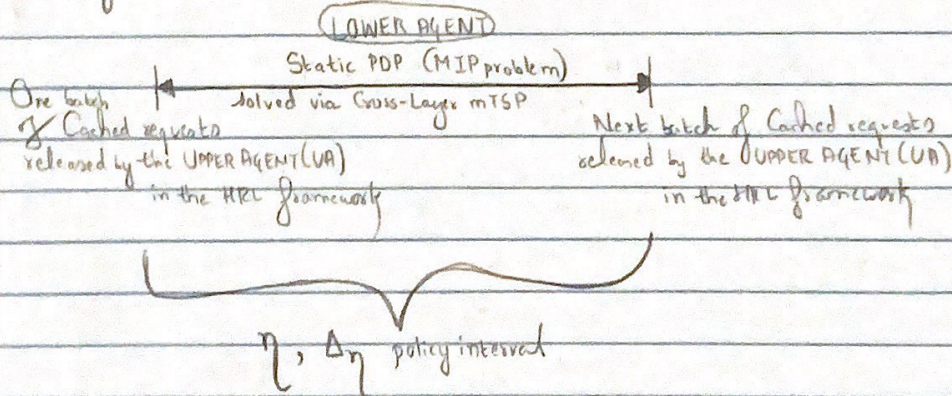 LOWER AGENT
Static PDP (MIP problem)
solved via Cross-Layer mTSP
One batch
of Cached requests
released by the UPPER AGENT (UA)
in the HRL framework
Next batch of Cached requests
released by the UPPER AGENT (UA)
in the HRL framework
η, Δη policy interval